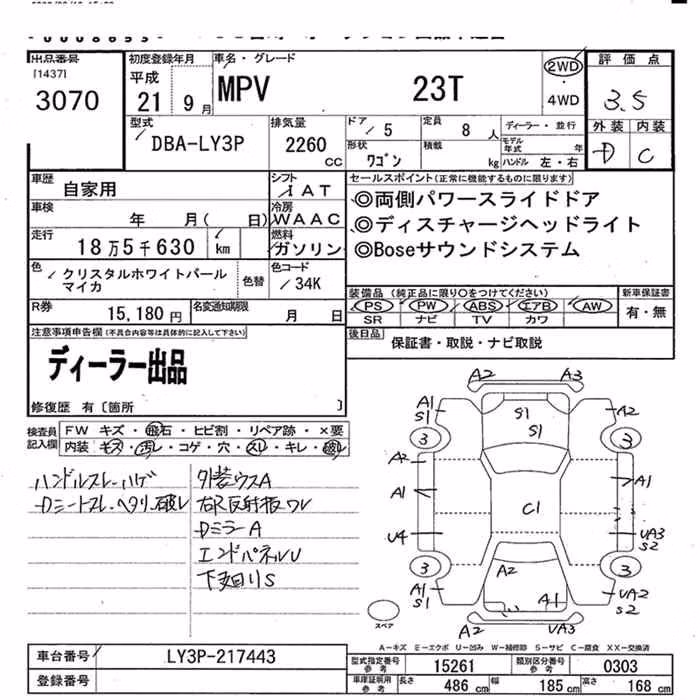 出品番号
[1437]
3070
初度登録年月
平成
21 9月
車名・グレード
MPV 23T
2WD
・
4WD
評価点
3.5
外装 内装
D C
型式
DBA-LY3P
排気量
2260 CC
ドア
5
定員
8 人
形状
ワゴン
積載
kg
ディーラー・並行
モデル年式 年
ハンドル 左・右
車歴
自家用
シフト
IAT
車検
年 月( 日)
冷房
WAAC
走行
18万5千630 km
燃料
ガソリン
色
クリスタルホワイトパール
マイカ
色替
色コード
34K
R券
15,180円
名変通知期限
月 日
セールスポイント(正常に機能するものに限ります)
◎両側パワースライドドア
◎ディスチャージヘッドライト
◎Boseサウンドシステム
装備品 (純正品に限り○をつけてください)
PS PW ABS エアB AW
SR ナビ TV カワ
新車保証書
有・無
後日品
保証書・取説・ナビ取説
注意事項申告欄(不具合内容等は具体的に記入して下さい)
ディーラー出品
修復歴 有〔箇所 〕
検査員
記入欄
FW キズ・飛石・ヒビ割・リペア跡・×要
内装 キズ・汚レ・コゲ・穴・スレ・キレ・破レ
ハンドルスレ・ハゲ
Dシートスレ・ヘタリ・破レ
外装ウスA
右R反射板ワレ
DミラーA
エンドパネルU
下廻りS
A2 A3
A1
S1
A2
S1
S1
3 3
A2
A1
A1
C1
U4
UA3
S2
3 3
A2
A1
S1
A1
UA2
S2
A2 UA3
スペア
A-キズ E-エクボ U-凹み W-補修跡 S-サビ C-腐食 XX-交換済
車台番号
LY3P-217443
登録番号
型式指定番号
参考
15261
類別区分番号
参考
0303
車庫証明用
参考
長さ 486 cm
幅 185 cm
高さ 168 cm